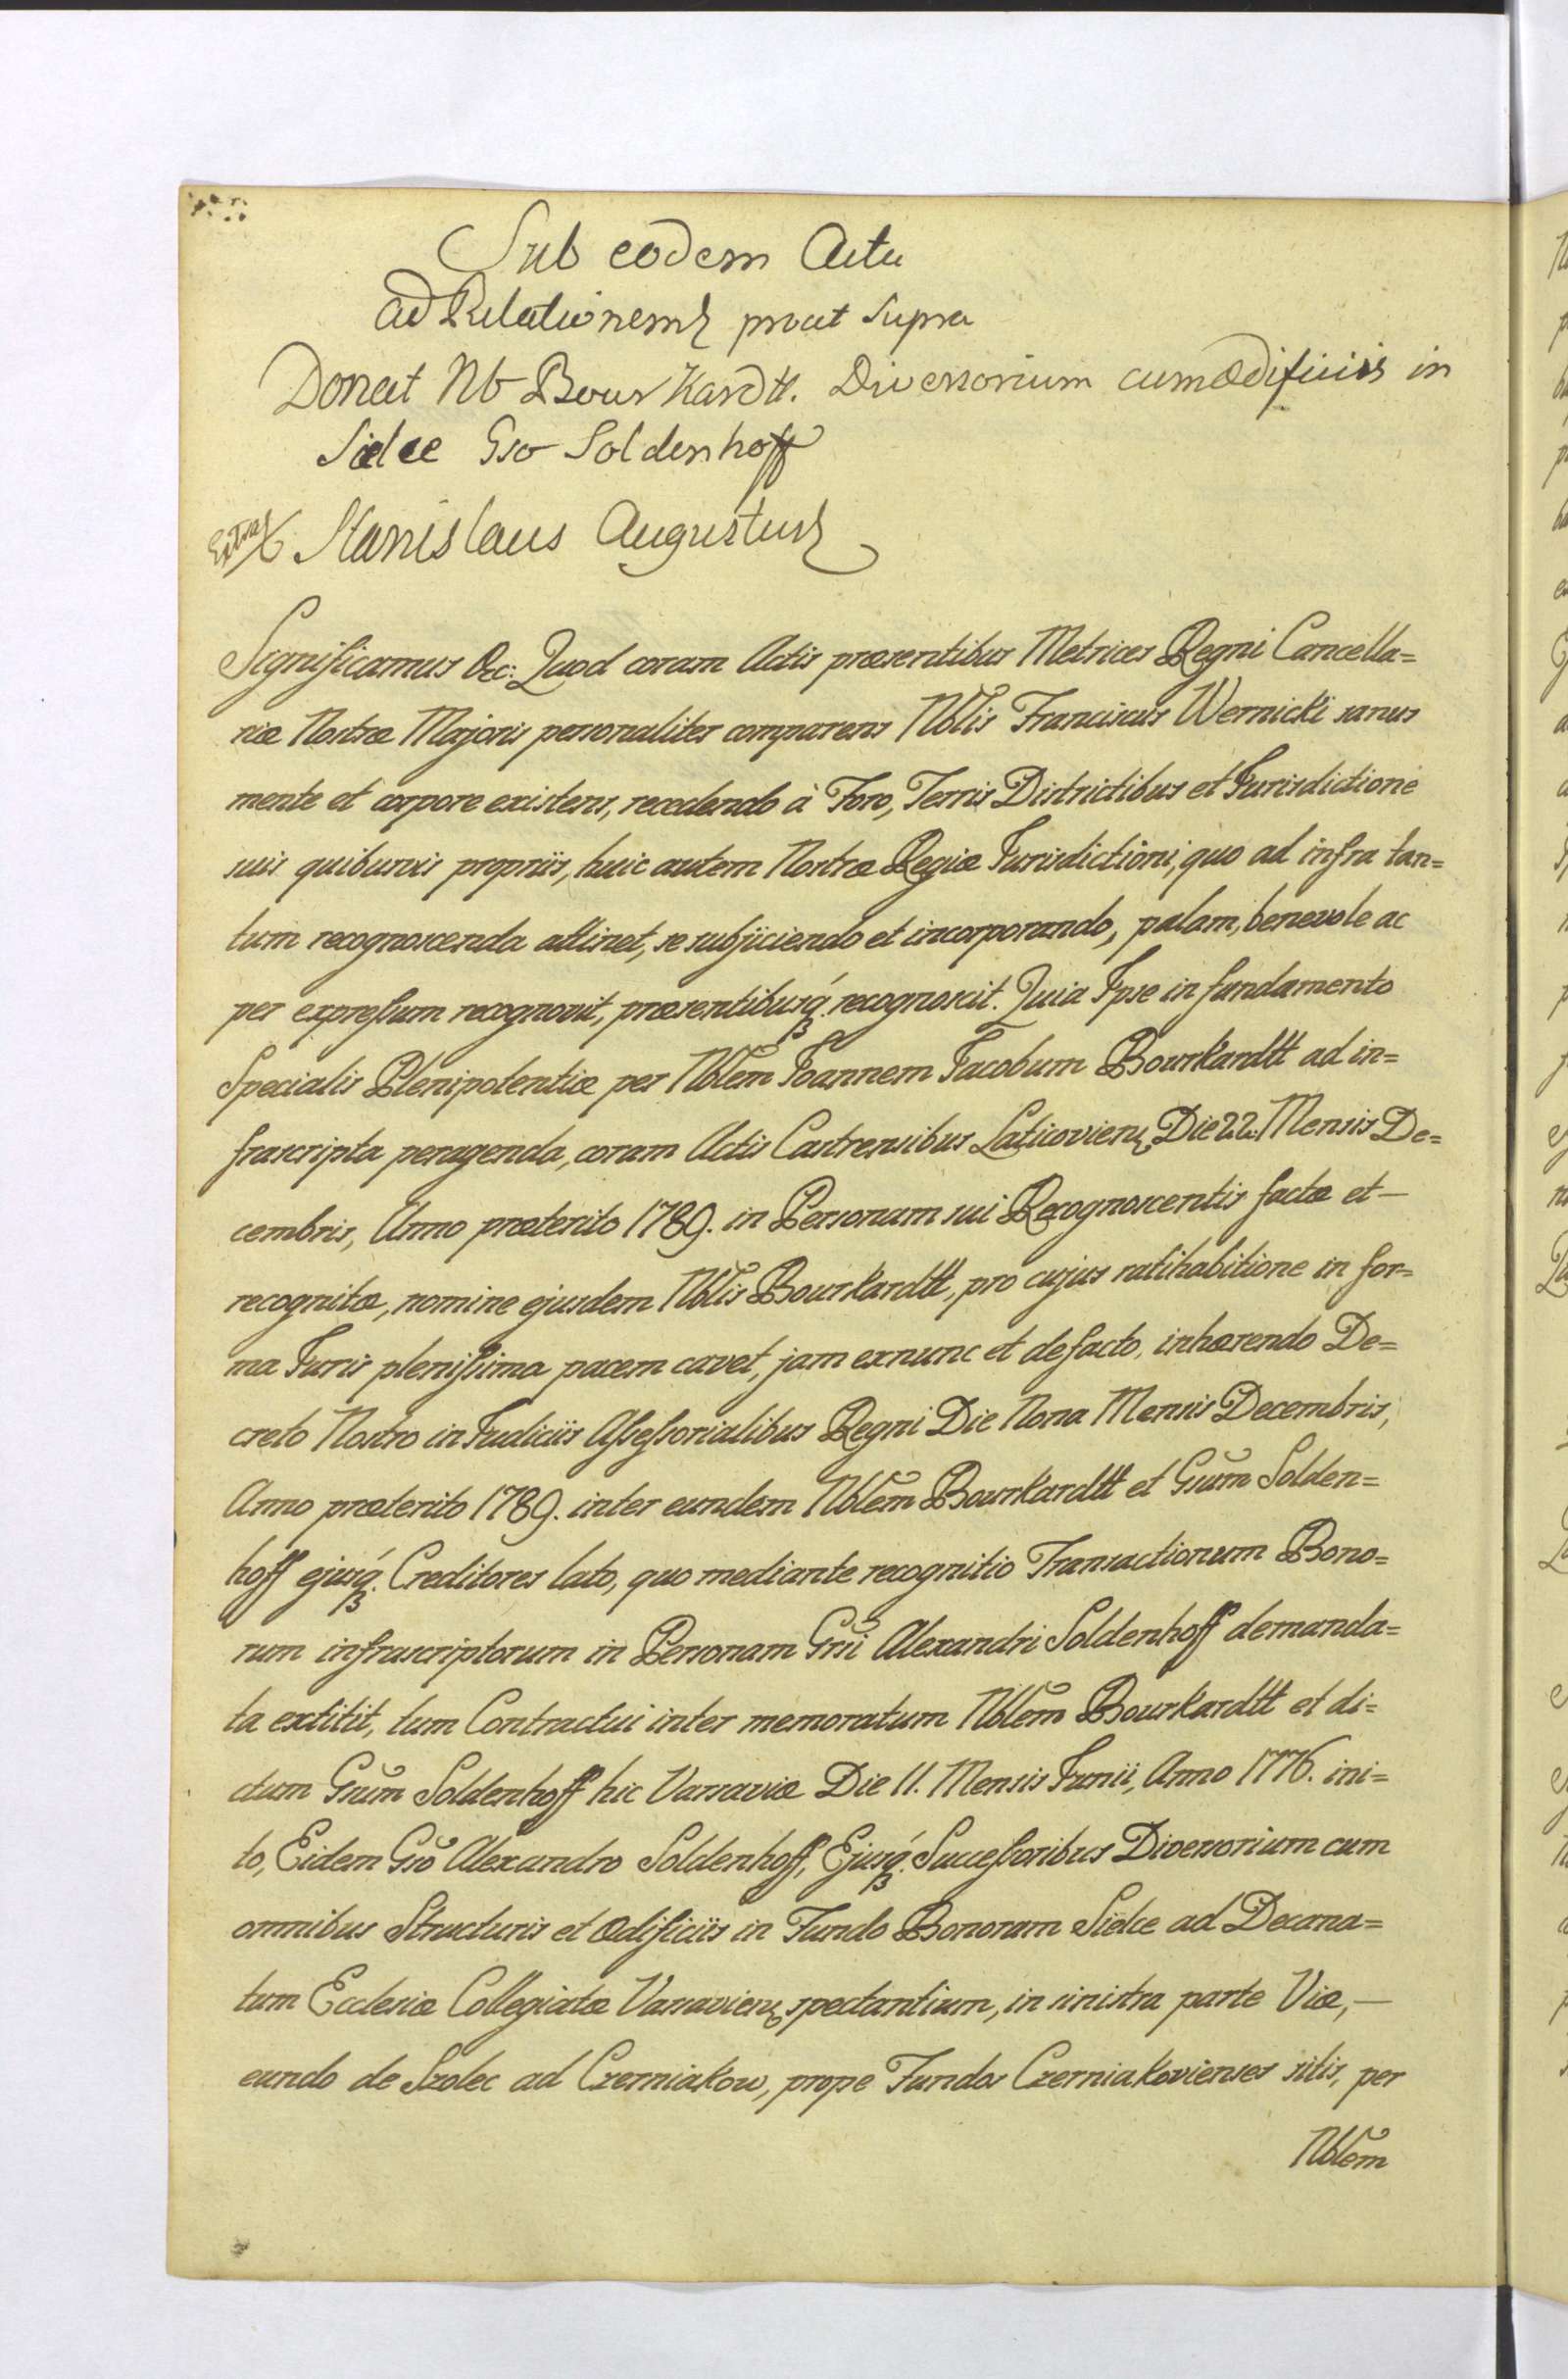 Sub eodem Actu
ad Relationem prout supra
Donat Nb Bourkardtt. Diversorium cum ædificiis in
Sielce Gso Soldenhoff
Extra Stanislaus Augustus
Significamus &c: Quod coram Actis præsentibus Metrices Regni Cancella=
riæ Nostræ Majoris personaliter comparens Nblis Franciscus Wernicki sanus
mente et corpore existens, recedendo à Foro, Terris Districtibus et Jurisdictione
suis quibusvis propriis, huic autem Nostræ Regiæ Jurisdictioni, quo ad infra tan=
tum recognoscenda attinet, se subjiciendo et incorporando, palam, benevole ac
per expressum recognovit, præsentibusq. recognoscit. Quia Ipse in fundamento
Specialis Plenipotentiæ per Nblem Joannem Jacobum Bourkardtt ad in=
frascripta peragenda, coram Actis Castrensibus Laticoviens Die 22. Mensis De=
cembris, Anno præterito 1789. in Personam sui Recognoscentis factæ et —
recognitæ, nomine ejusdem Nblis Bourkardtt, pro cujus ratihabitione in for=
ma Juris plenissima pacem cavet, jam exnunc et defacto, inhærendo De=
creto Nostro in Judiciis Assessorialibus Regni Die Nona Mensis Decembris,
Anno præterito 1789. inter eundem Nblem Bourkardtt et Gsum Solden=
hoff ejusq. Creditores lato, quo mediante recognitio Transactionum Bono=
rum infrascriptorum in Personam Gsi Alexandri Soldenhoff demanda=
ta extitit, tum Contractui inter memoratum Nblem Bourkardtt et di=
ctum Gsum Soldenhoff hic Varsaviæ Die 11. Mensis Junii, Anno 1776. ini=
to, Eidem Gso Alexandro Soldenhoff, Ejusq. Successoribus Diversorium cum
omnibus Structuris et Ædificiis in Fundo Bonorum Sielce ad Decana=
tum Ecclesiæ Collegiatæ Varsaviens spectantium, in sinistra parte Viæ, —
eundo de Szolec ad Czerniakow, prope Fundos Czerniakovienses sitis, per
Nblem